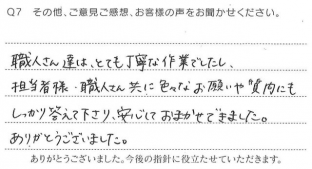 Q7 その他、ご意見ご感想、お客様の声をお聞かせください。
職人さん達は、とても丁寧な作業でしたし、
担当者様・職人さん共に色々なお願いや質問にも
しっかり答えて下さり、安心しておまかせできました。
ありがとうございました。
ありがとうございました。今後の指針に役立たせていただきます。